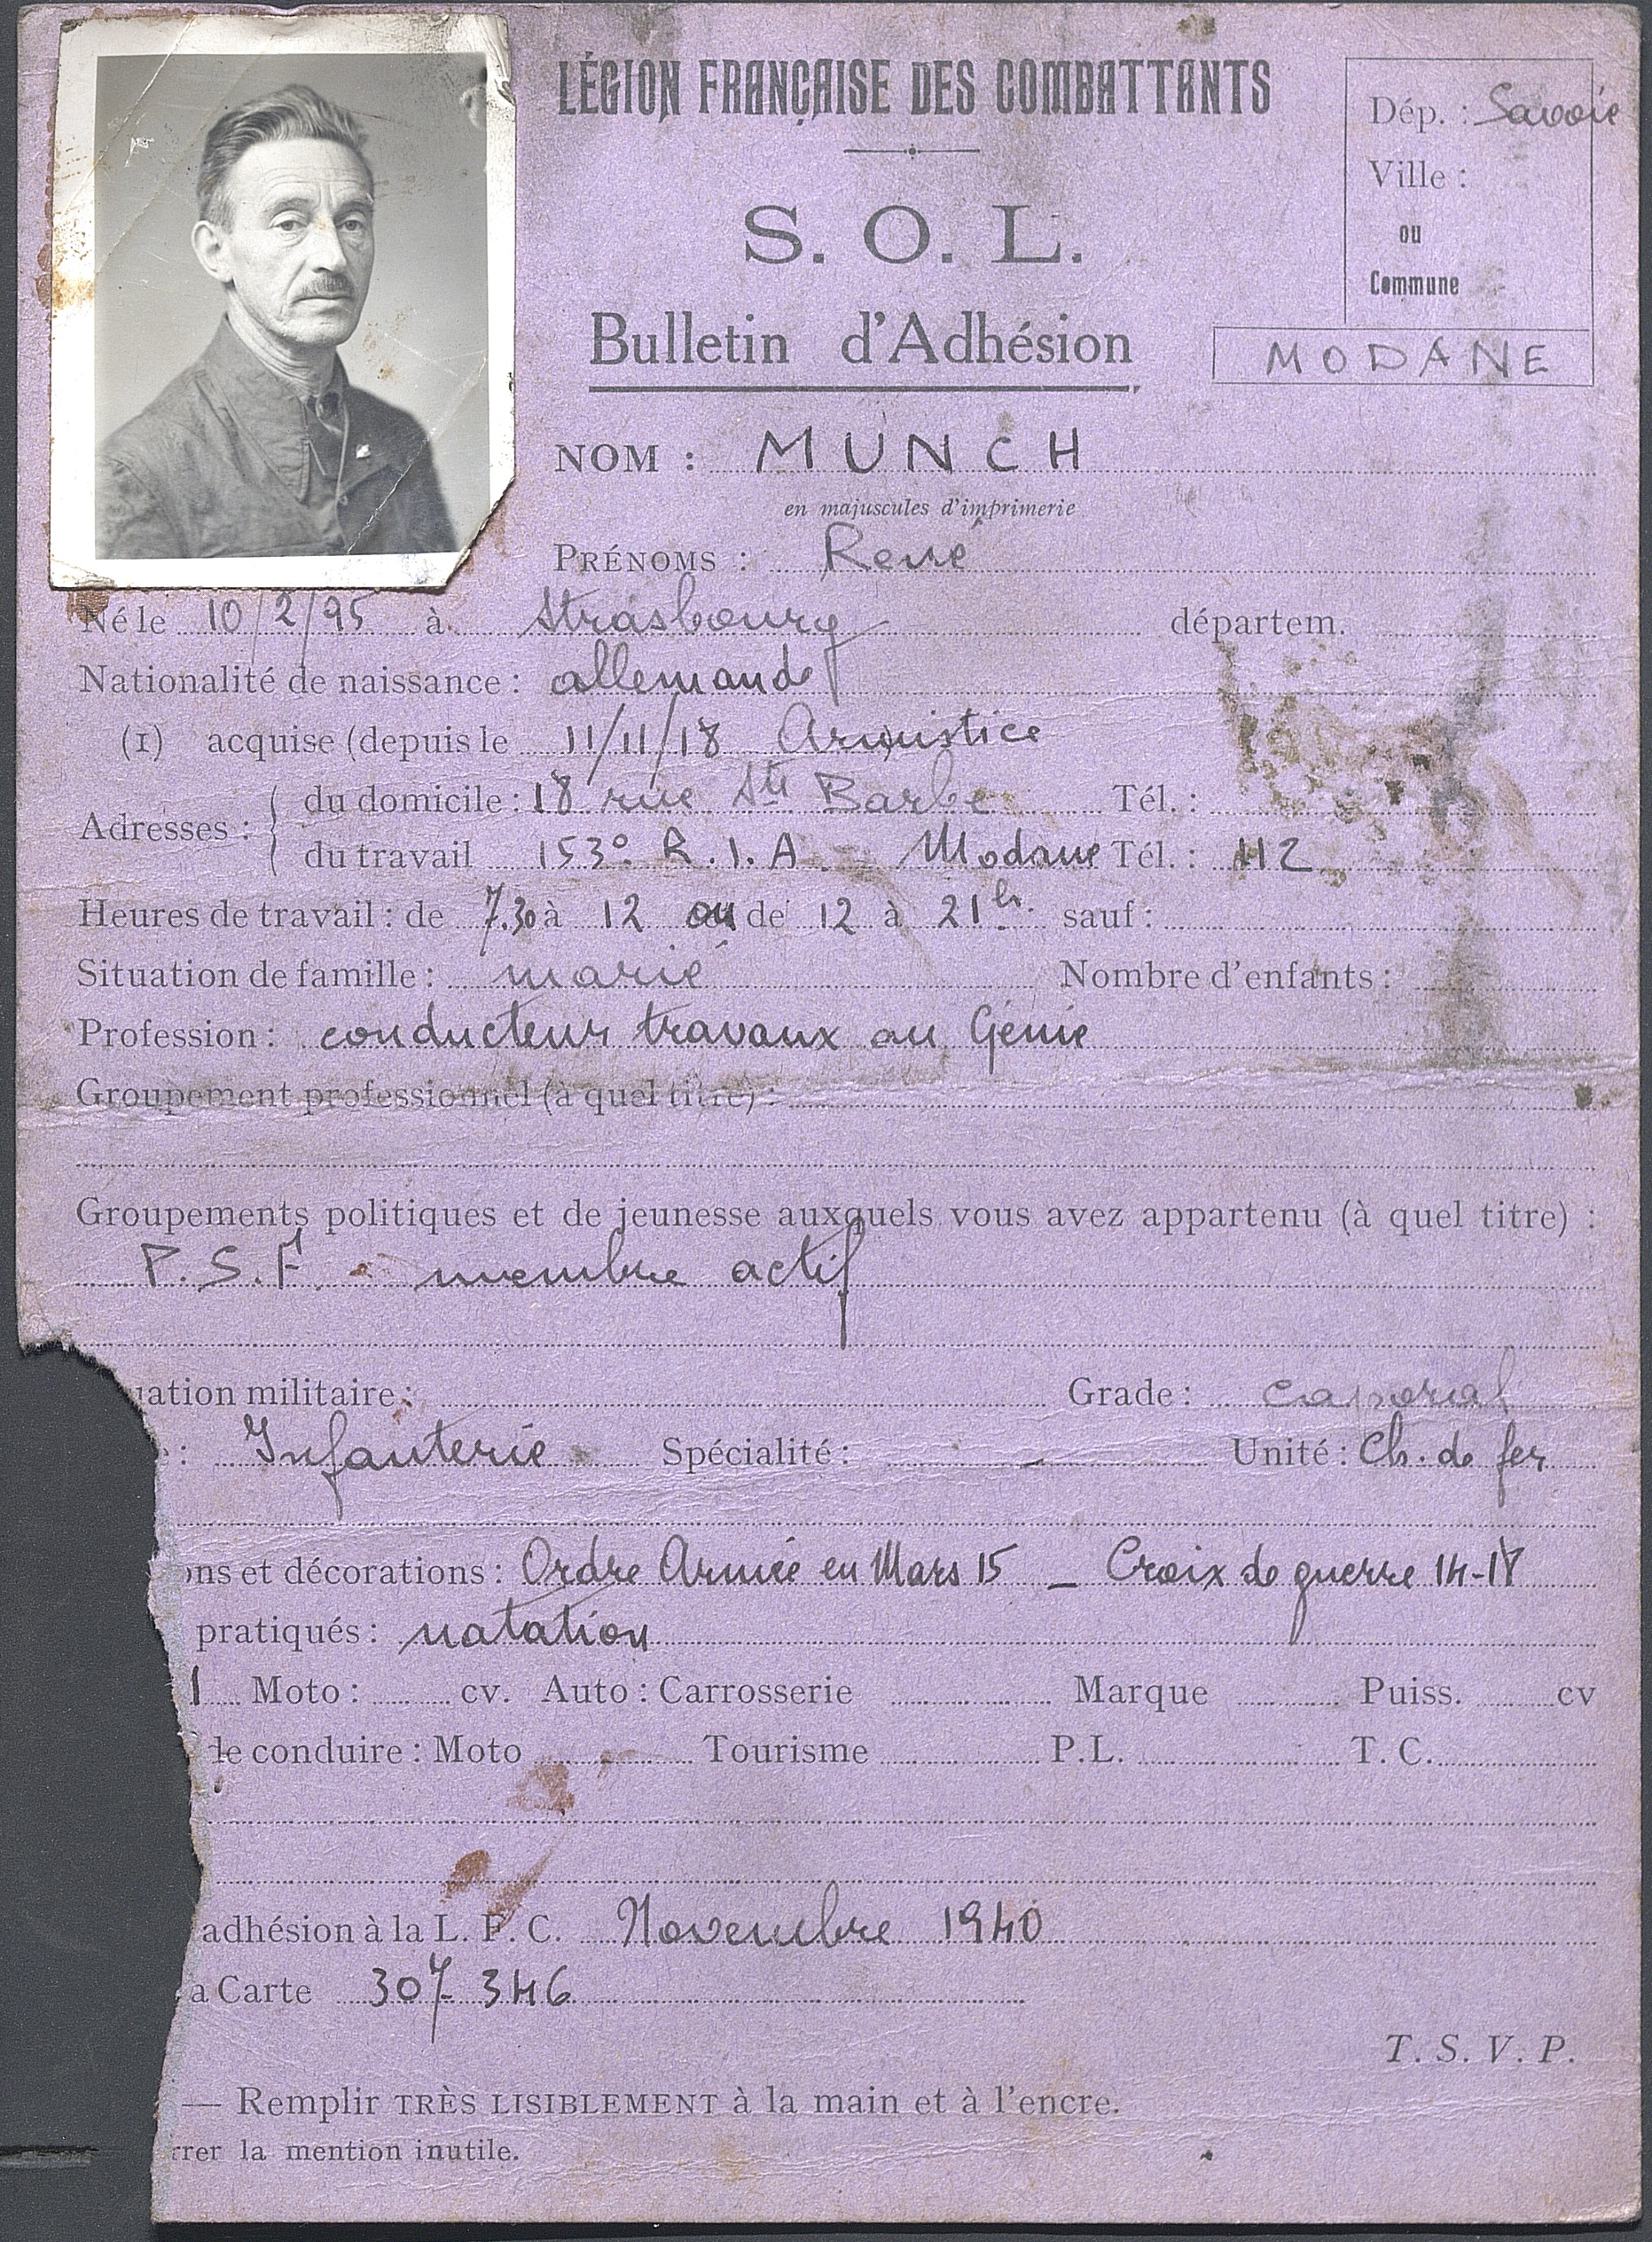 LÉGION FRANÇAISE DES COMBATTANTS
S. O. L.
Bulletin d'Adhésion
Dép. : Savoie
Ville :
ou
Commune
MODANE
NOM : MUNCH
en majuscules d'imprimerie
PRÉNOMS : René
Né le 10/2/95 à Strasbourg départem.
Nationalité de naissance : allemande
(1) acquise (depuis le 11/11/18 Armistice
Adresses :
du domicile : 18 rue Ste Barbe Tél. :
du travail 153° R.I.A. Modane Tél. : 112
Heures de travail : de 7.30 à 12 ou de 12 à 21h. sauf :
Situation de famille : marié Nombre d'enfants :
Profession : conducteur travaux au Génie
Groupement professionnel (à quel titre) :
Groupements politiques et de jeunesse auxquels vous avez appartenu (à quel titre) :
P.S.F. - membre actif
uation militaire : Grade : caporal
: Infanterie Spécialité : - Unité : Ch. de fer
ons et décorations : Ordre Armée en Mars 15 - Croix de guerre 14-18
pratiqués : natation
1 Moto : cv. Auto : Carrosserie Marque Puiss. cv
de conduire : Moto Tourisme P.L. T. C.
adhésion à la L. F. C. Novembre 1940
a Carte 307 346
T. S. V. P.
— Remplir TRÈS LISIBLEMENT à la main et à l'encre.
rrer la mention inutile.